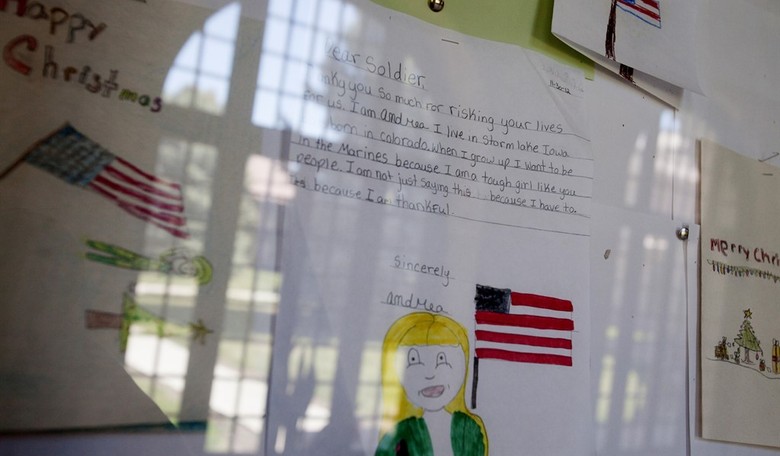 Happy
Christmas
ear Soldier,
nky you so much for risking your lives
for us. I am andrea I live in Storm lake Iowa
born in colorado. when I grow up I want to be
in the Marines because I am a tough girl like you
people. I am not just saying this because I have to.
because I am thankful.
Sincerely
andrea
Merry Chri